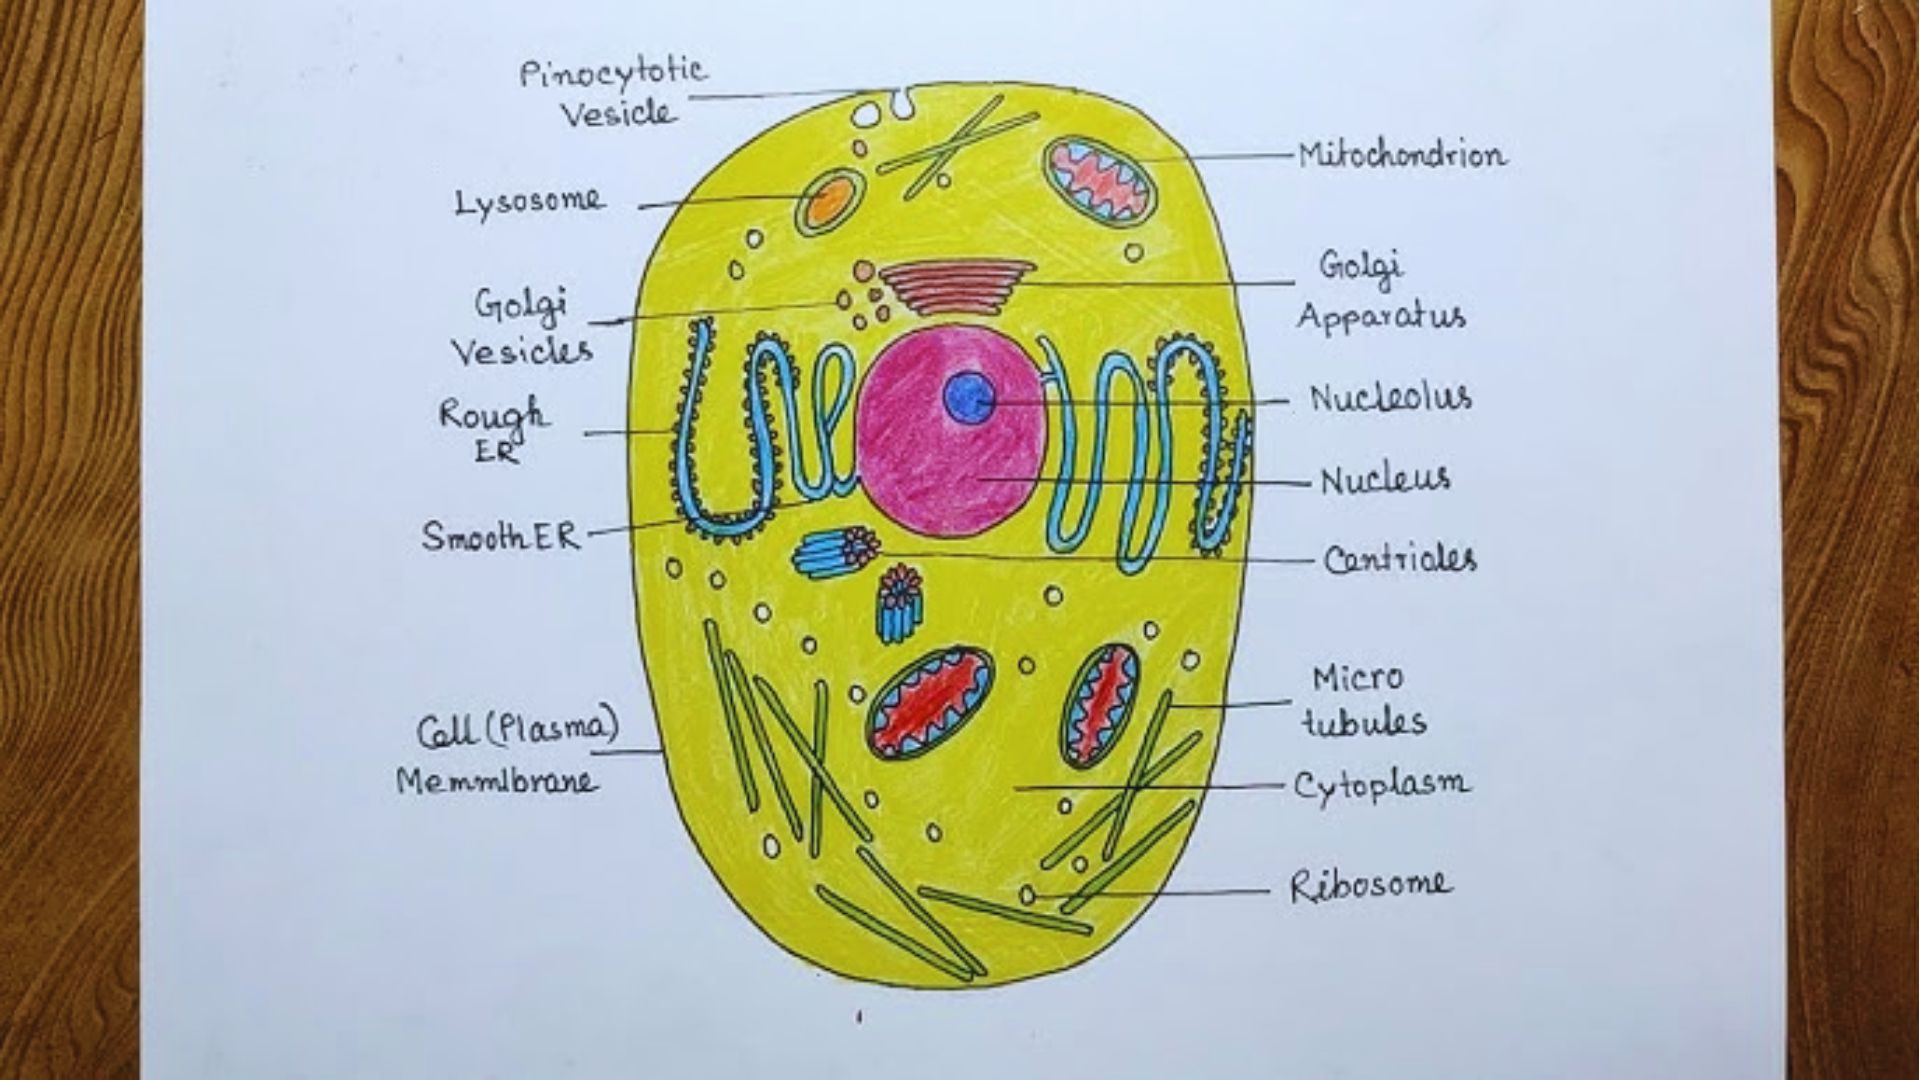 Pinocytotic
Vesicle
Lysosome
Golgi
Vesicles
Rough
ER
Smooth ER
Cell (Plasma)
Memmlbrane
Mitochondrion
Golgi
Apparatus
Nucleolus
Nucleus
Centrioles
Micro
tubules
Cytoplasm
Ribosome